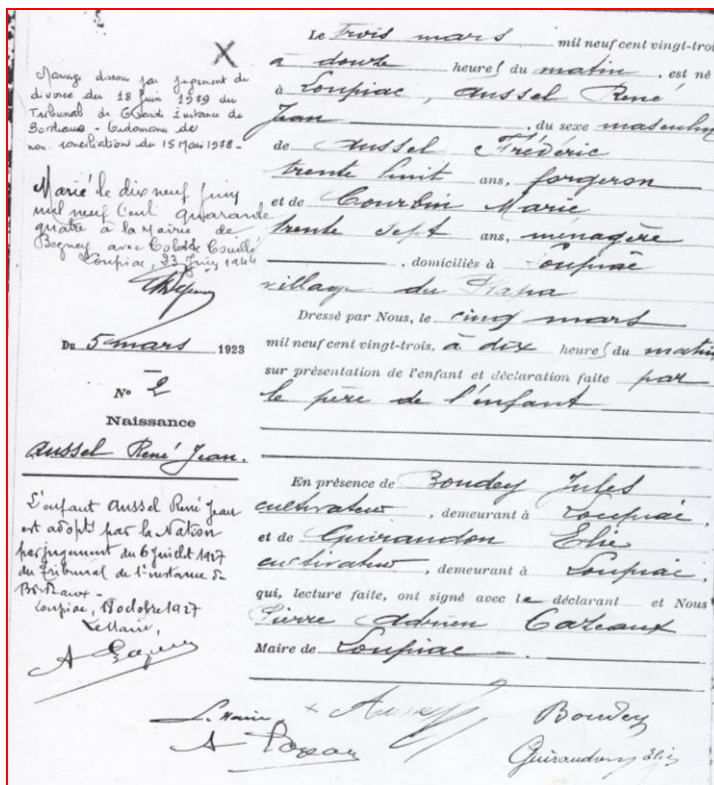 Mariage dissous par jugement de
divorce du 18 Juin 1979 du
Tribunal de Grande Instance de
Bordeaux - Ordonnance de
non conciliation du 15 Mai 1978 -
Marié le dix neuf Juin
mil neuf Cent quarante
quatre à la Mairie de
Beguey avec Colette
Loupiac, 23 Juin 1944
Du 5 mars 1923
N° 2
Naissance
Aussel René Jean.
L'enfant Aussel René Jean
est adopté par la Nation
par jugement du 6 juillet 1927
du Tribunal de l'instance de
Bordeaux -
Loupiac, 18 octobre 1927
Le Maire,
Le trois mars mil neuf cent vingt-trois
à douze heures du matin, est né
à Loupiac, Aussel René
Jean, du sexe masculin
de Aussel Frédéric
trente huit ans, forgeron
et de Courbin Marie
trente sept ans, ménagère
, domiciliés à Loupiac
village du Plapa
Dressé par Nous, le cinq mars
mil neuf cent vingt-trois, à dix heures du matin,
sur présentation de l'enfant et déclaration faite par
le père de l'enfant
En présence de Boudey Jules
cultivateur, demeurant à Loupiac,
et de Guiraudon Elie
cultivateur, demeurant à Loupiac,
qui, lecture faite, ont signé avec le déclarant et Nous
Pierre Adrien Cazeaux
Maire de Loupiac
Le Maire Aussel Boudey
Guiraudon Elie